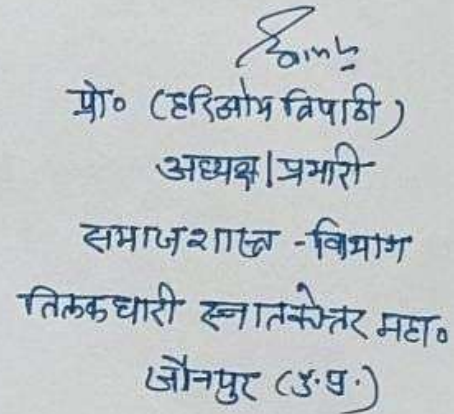 प्रो० (हरिओम त्रिपाठी)
अध्यक्ष|प्रभारी
समाजशास्त्र - विभाग
तिलकधारी स्नातकोत्तर महा०
जौनपुर (उ.प्र.)